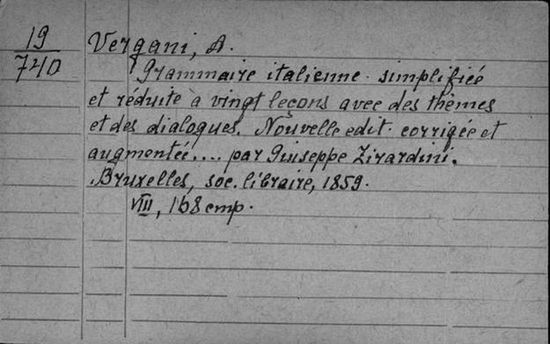 19
740
Vergani, A.
Grammaire italienne simplifiée
et réduite à vingt leçons avec des thèmes
et des dialogues. Nouvelle edit. corrigée et
augmentée.... par Guiseppe Zirardini.
Bruxelles, soc. libraire, 1859.
VIII, 168 стр.